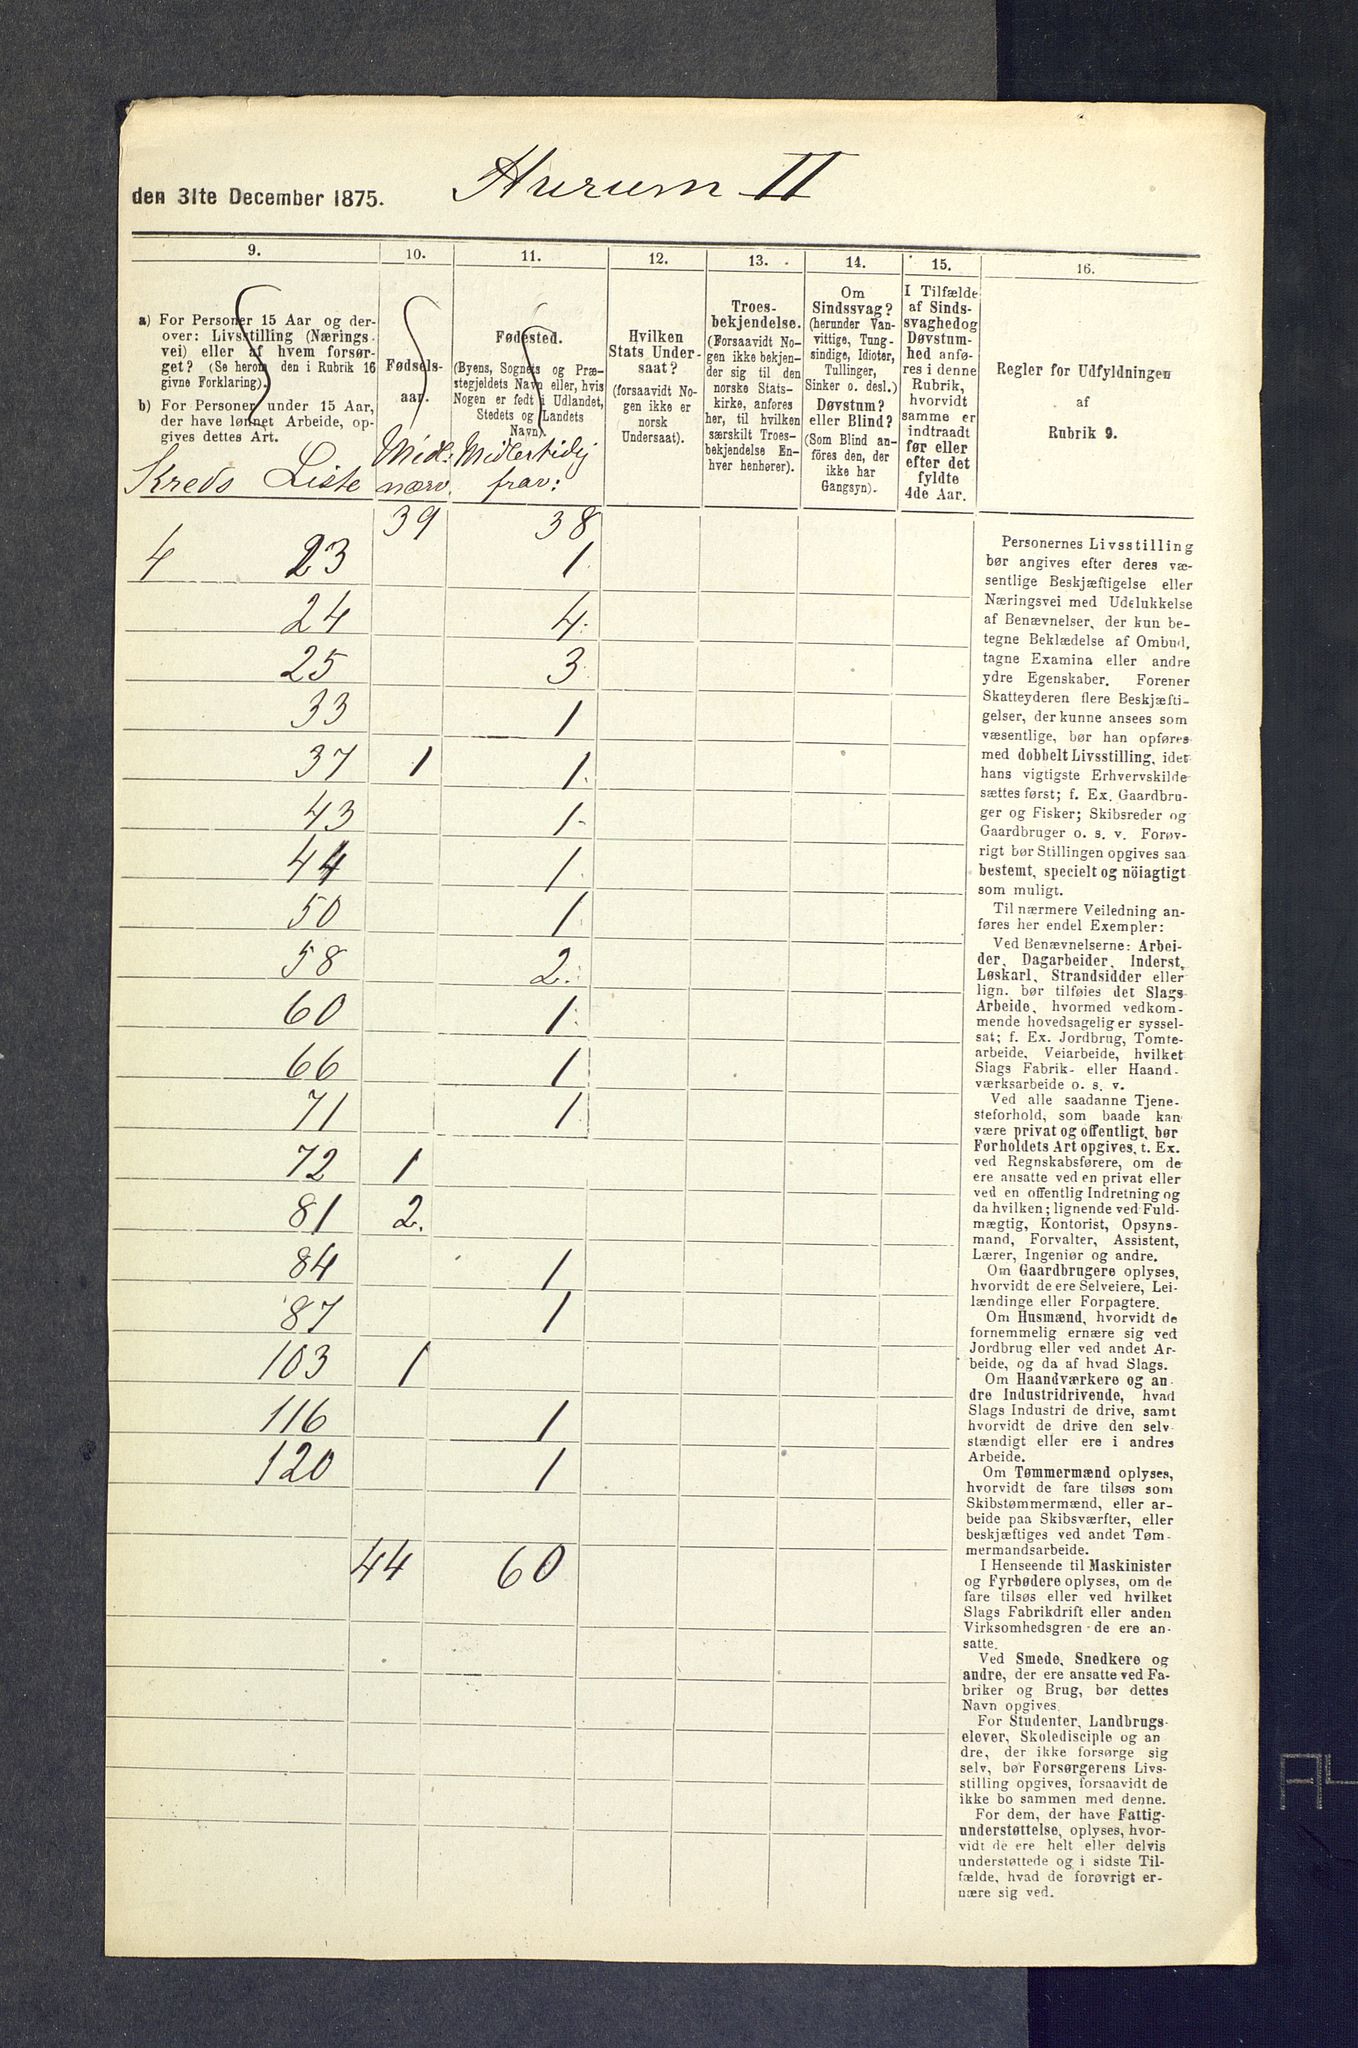 Hurum II
den 31te December 1875.
9.
a) For Personer 15 Aar og der-
over: Livsstilling (Nærings-
vei) eller af hvem forsør-
get? (Se herom den i Rubrik 16
givne Forklaring).
b) For Personer under 15 Aar,
der have lønnet Arbeide, op-
gives dettes Art.
Kreds Liste
10.
Fødsels-
aar.
Midl:
nærv.
11.
Fødested.
(Byens, Sognets og Præ-
stegjeldets Navn eller, hvis
Nogen er født i Udlandet,
Stedets og Landets
Navn).
Midlertidig
frav:
12.
Hvilken
Stats Under-
saat?
(forsaavidt No-
gen ikke er
norsk
Undersaat).
13.
Troes-
bekjendelse.
(Forsaavidt No-
gen ikke bekjen-
der sig til den
norske Stats-
kirke, anføres
her, til hvilken
særskilt Troes-
bekjendelse En-
hver henhører).
14.
Om
Sindssvag?
(herunder Van-
vittige, Tung-
sindige, Idioter,
Tullinger,
Sinker o. desl.)
Døvstum?
eller Blind?
(Som Blind an-
föres den, der
ikke har
Gangsyn).
15.
I Tilfælde
af Sinds-
svaghed og
Døvstum-
hed anfø-
res i denne
Rubrik,
hvorvidt
samme er
indtraadt
før eller
efter det
fyldte
4de Aar.
16.
Regler for Udfyldningen
af
Rubrik 9.
39 38
4 23 1
24 4
25 3
33 1
37 1 1
43 1
44 1
50 1
58 2
60 1
66 1
71 1
72 1
81 2
84 1
87 1
103 1
116 1
120 1
44 60
Personernes Livsstilling
bør angives efter deres væ-
sentlige Beskjæftigelse eller
Næringsvei med Udelukkelse
af Benævnelser, der kun be-
tegne Beklædelse af Ombud,
tagne Examina eller andre
ydre Egenskaber. Forener
Skatteyderen flere Beskjæfti-
gelser, der kunne ansees som
væsentlige, bør han opføres
med dobbelt Livsstilling, idet
hans vigtigste Erhvervskilde
sættes først; f. Ex. Gaardbru-
ger og Fisker; Skibsreder og
Gaardbruger o. s. v. Forøv-
rigt bør Stillingen opgives saa
bestemt, specielt og nöiagtigt
som muligt.
Til nærmere Veiledning an-
føres her endel Exempler:
Ved Benævnelserne: Arbei-
der, Dagarbeider, Inderst,
Løskarl, Strandsidder eller
lign. bør tilføies det Slags
Arbeide, hvormed vedkom-
mende hovedsagelig er syssel-
sat; f. Ex. Jordbrug, Tomte-
arbeide, Veiarbeide, hvilket
Slags Fabrik- eller Haand-
værksarbeide o. s. v.
Ved alle saadanne Tjene-
steforhold, som baade kan
være privat og offentligt, bør
Forholdets Art opgives, t. Ex.
ved Regnskabsførere, om de
ere ansatte ved en privat eller
ved en offentlig Indretning og
da hvilken; lignende ved Fuld-
mægtig, Kontorist, Opsyns-
mand, Forvalter, Assistent,
Lærer, Ingeniør og andre.
Om Gaardbrugere oplyses,
hvorvidt de ere Selveiere, Lei-
lændinge eller Forpagtere.
Om Husmænd, hvorvidt de
fornemmelig ernære sig ved
Jordbrug eller ved andet Ar-
beide, og da af hvad Slags.
Om Haandværkere og an-
dre Industridrivende, hvad
Slags Industri de drive, samt
hvorvidt de drive den selv-
stændigt eller ere i andres
Arbeide.
Om Tømmermænd oplyses,
hvorvidt de fare tilsøs som
Skibstømmermænd, eller ar-
beide paa Skibsværfter, eller
beskjæftiges ved andet Tøm-
mermandsarbeide.
I Henseende til Maskinister
og Fyrbødere oplyses, om de
fare tilsøs eller ved hvilket
Slags Fabrikdrift eller anden
Virksomhedsgren de ere an-
satte.
Ved Smede, Snedkere og
andre, der ere ansatte ved Fa-
briker og Brug, bør dettes
Navn opgives.
For Studenter, Landbrugs-
elever, Skoledisciple og an-
dre, der ikke forsørge sig
selv, bør Forsørgerens Livs-
stilling opgives, forsaavidt de
ikke bo sammen med denne.
For dem, der have Fattig-
understøttelse, oplyses, hvor-
vidt de ere helt eller delvis
understøttede og i sidste Til-
fælde, hvad de forøvrigt er-
nære sig ved.
A4